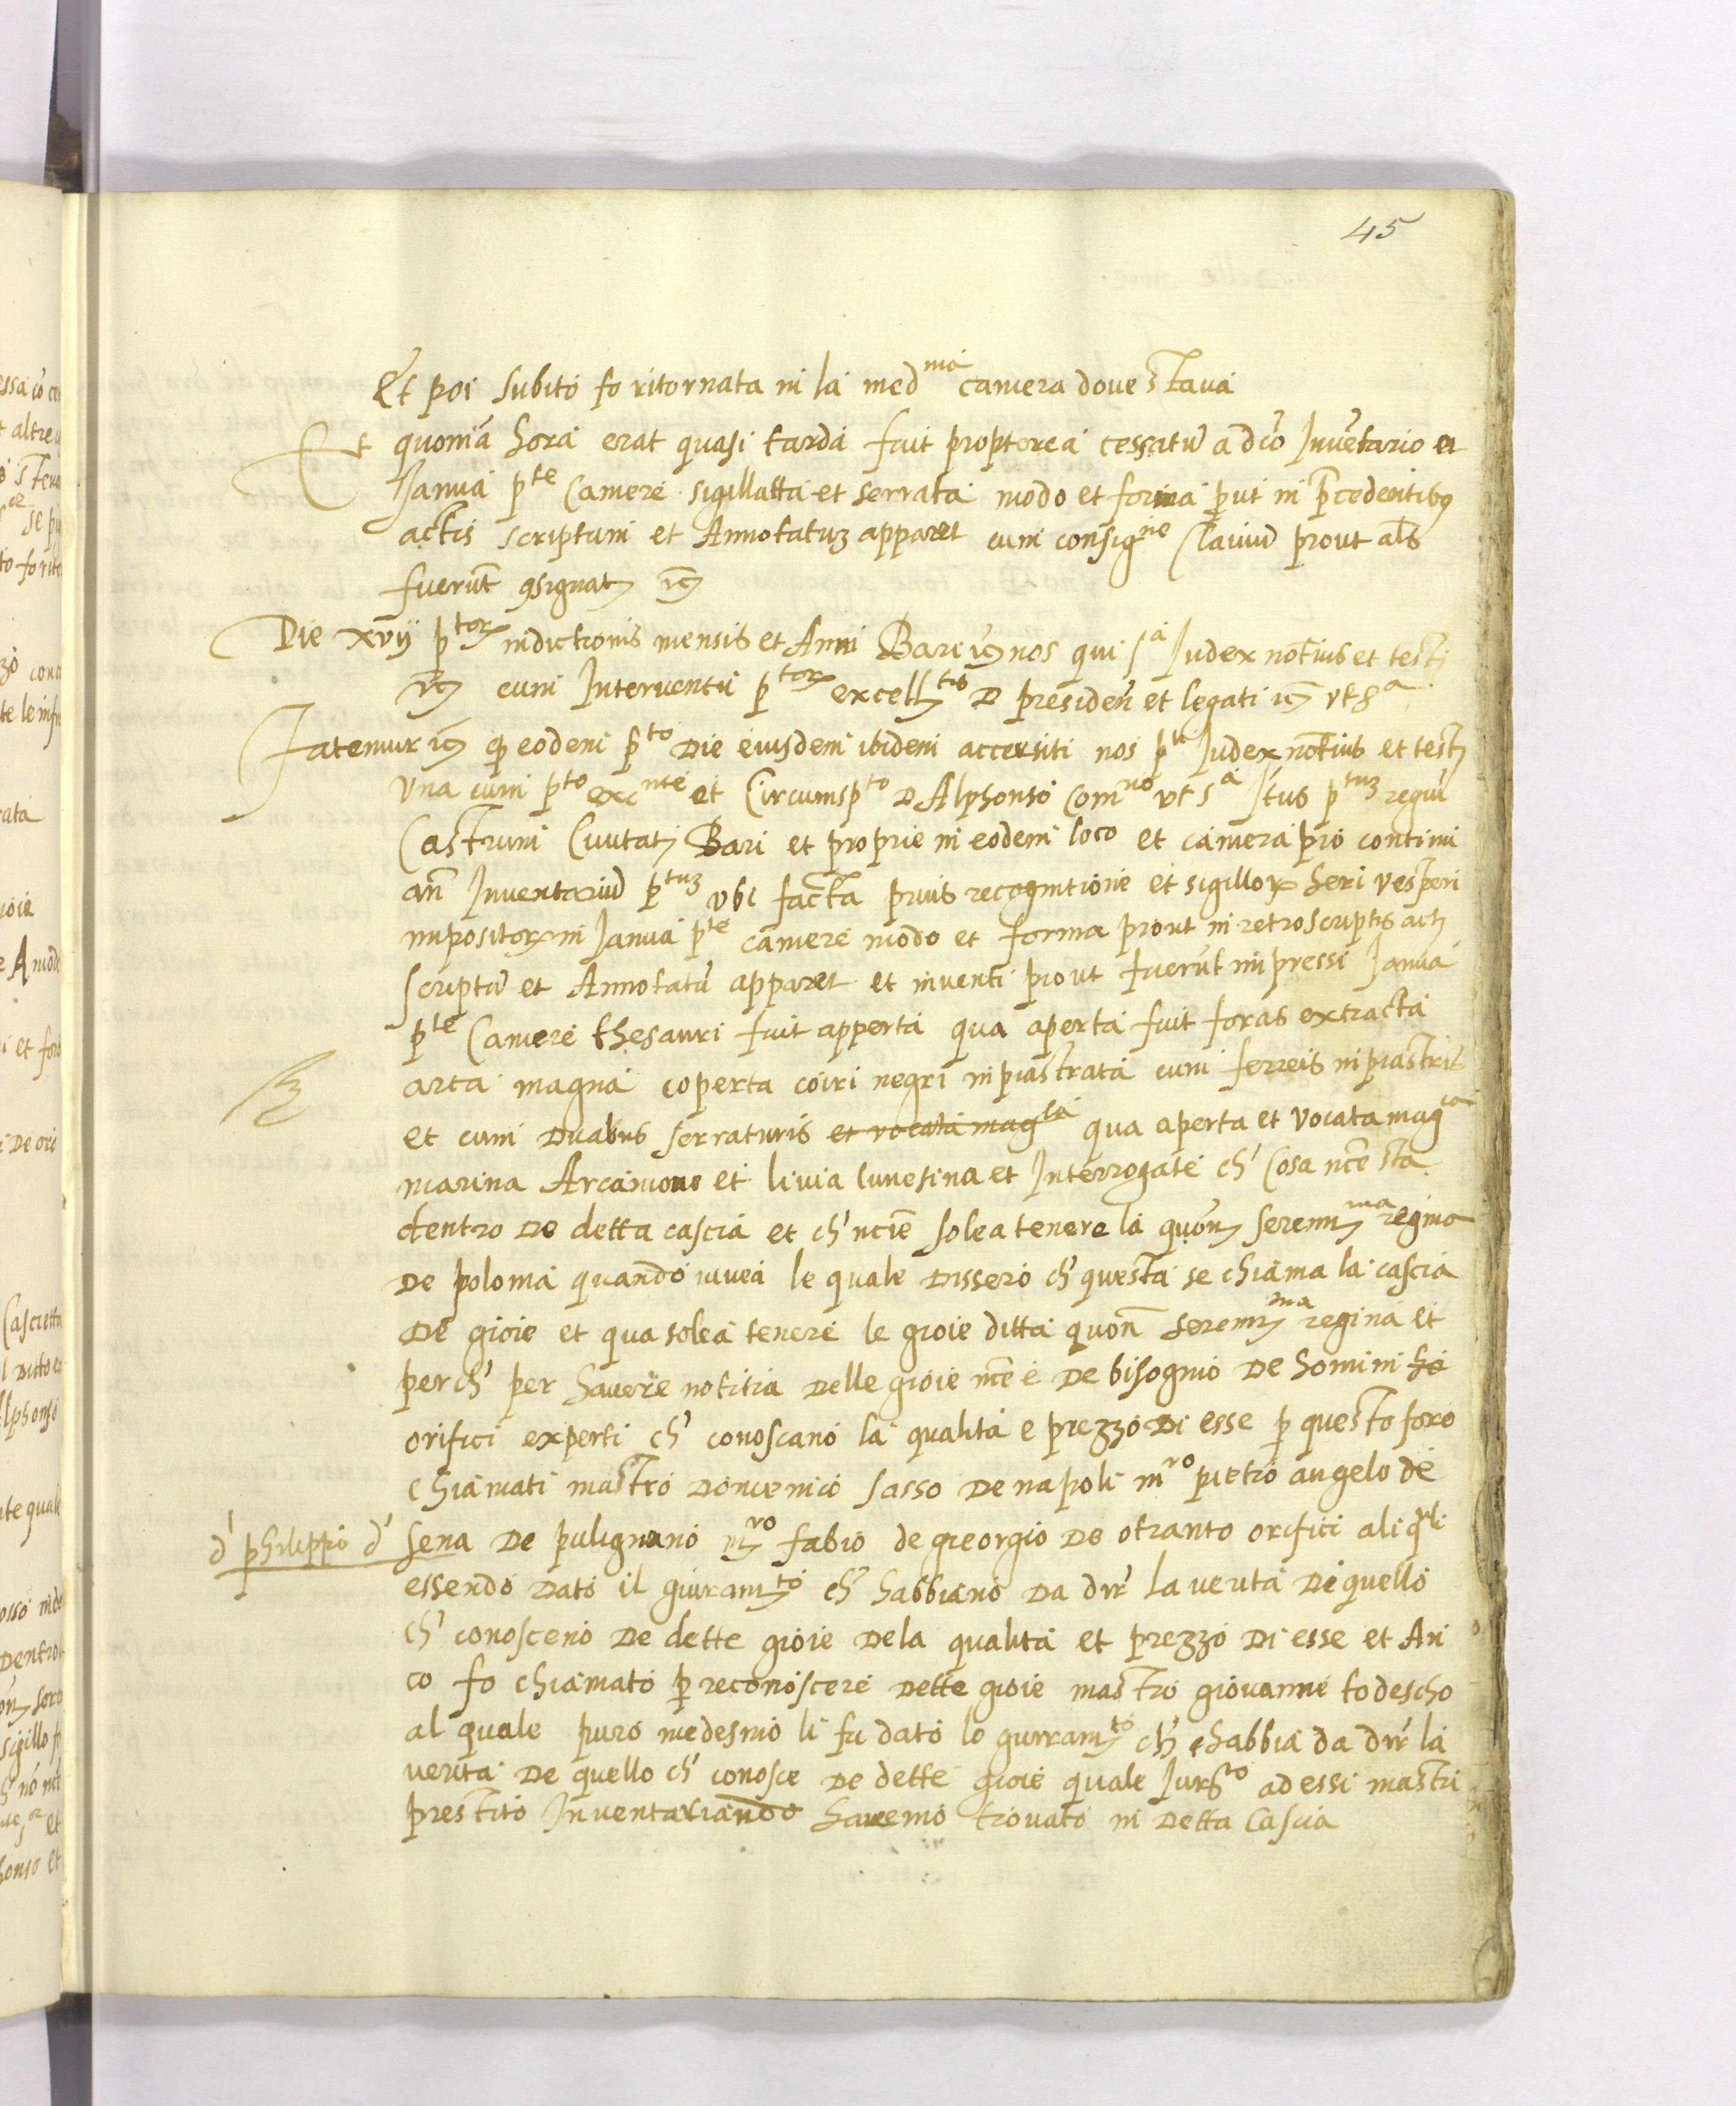 45
Et poi subito fo ritornata in la med^ma camera dove stava
Et quoniã hora erat quasi tarda fuit propterea cessatũ a dc̃o Inventario et
Janua p^te Camere sigillatta et serrata modo et forma put in p̃cedentibus
actis scriptum et Annotatuz apparet cum consig^ne Claviũ prout als
fuerũt ɔsignat
Die xvij p^tor indictionis mensis et Anni Bari nos qui s^a Judex not̃ius et testi
cum Interventu p^tor excell^tis D presideñ et legati ut s^a
Fatemur eodem p^to Die eiusdem ibidem accersiti nos Judex not̃ius et test
Una cum p^to exc^nte et Circumsp^to D Alphonso Com^no ut s^a p^tuz regiũ
Castrum Civitat Bari et proprie in eodem loco et camera pro continu
añ Inventariũ p^tuz ubi facta prius recognitione et sigillor heri vesperi
impositor in Janua p^te camere modo et forma prout in retroscriptis act
scriptũ et Annotatũ apparet et inventi prout fuerũt impressi Janua
p^te Camere thesauri fuit apperta qua aperta fuit foras extracta
arca magna coperta coiri negri inpiastrata cum ferreis inpiastris
et cum Duabus serraturis et vocata mag^ca qua aperta et vocata mag^ca
marina Arcamone et livia lunesina et Interrogate ch' Cosa nce sta
dentro De detta cascia et ch' ncie solea tenere la quon seren^ma regina
De polonia quando vivea le quale Dissero ch' questa se chiama la cascia
De gioie et qua solea tenere le gioie ditta quoñ seren^ma regina et
perch' per havere notitia Delle gioie nce è De bisogno De homini
orifici experti ch' conoscano la qualita e prezzo Di esse p questo foro
chiamati mastro Domenico sasso De napoli m^ro pietro angelo de
d' philippo d'
sena De pulignano m^ro fabio de georgio De otranto orifici ali q^li
essendo Dato il giuram^to ch' habbiano Da dir̃ la verita Di quello
ch' conosceno De dette gioie Dela qualita et prezzo Di esse et An
co fo chiamato p reconoscere Dette gioie mastro giovanne todescho
al quale puro medesmo li fu dato lo giuram^to ch' habbia da dir̃ la
verita De quello ch' conosce De dette gioie quale Jur^to ad essi mastri
prestito Inventariando havemo trovato in Detta Cascia